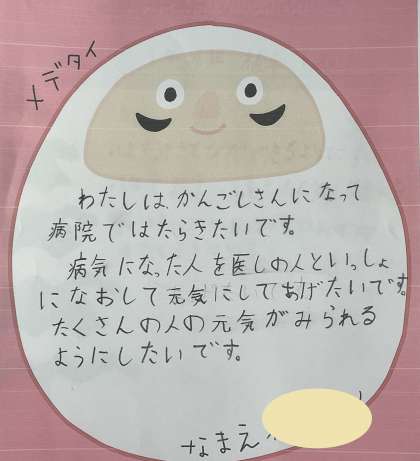 メデタイ
わたしは、かんごしさんになって
病院ではたらきたいです。
病気になった人を医しの人といっしょ
になおして元気にしてあげたいです。
たくさんの人の元気がみられる
ようにしたいです。
なまえ